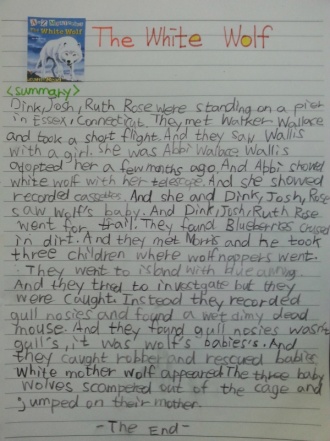 A to Z Mysteries
The White Wolf
The White Wolf
<summary>
Dink, Josh, Ruth Rose were standing on a pier
in Essex, Connecticut. They met Walker Wallace
and took a short flight. And they saw Wallis
with a girl. She was Abbi Walace Wallis
adopted her a few months ago. And Abbi showed
white wolf with her telescope. And she showed
recorded cassettes. And she and Dink, Josh, Rose
saw wolf's baby. And Dink, Josh, Ruth Rose
went for trail. They found Blueberries crused
in dirt. And they met Norris and he took
three children where wolfnappers went.
They went to island with blue awning.
And they tried to investgate but they
were caught. Instead they recorded
gull nosies and found a wet dimy dead
mouse. And they found gull nosies wasn't
gull's, it was wolf's babies's. And
they caught robber and rescued babies
white mother wolf appeared. The three baby
wolves scampeted out of the cage and
jumped on their mother.
-The End-